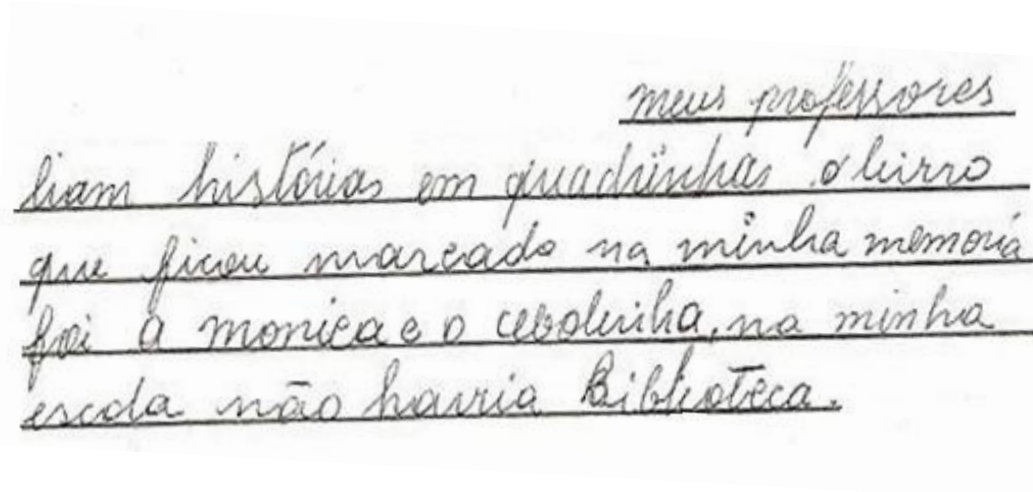 meus professores
liam histórias em quadrinhas o livro
que ficou marcado na minha memoria
foi a monica e o ceboleinha, na minha
escola não havia Biblioteca.